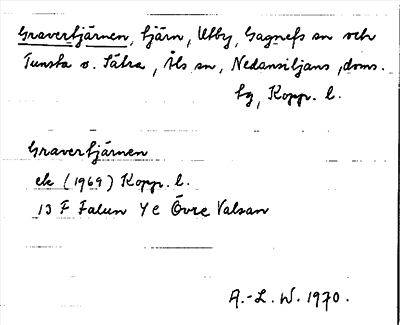 Gravertjärnen, tjärn, Utby, Gagnefs sn och
Tunsta o. Sätra, Åls sn, Nedansiljans, doms.
tg, Kopp. l.
Gravertjärnen
ek (1969) Kopp. l.
13 F Falun 4 e Övre Valsan
A.-L. W. 1970.